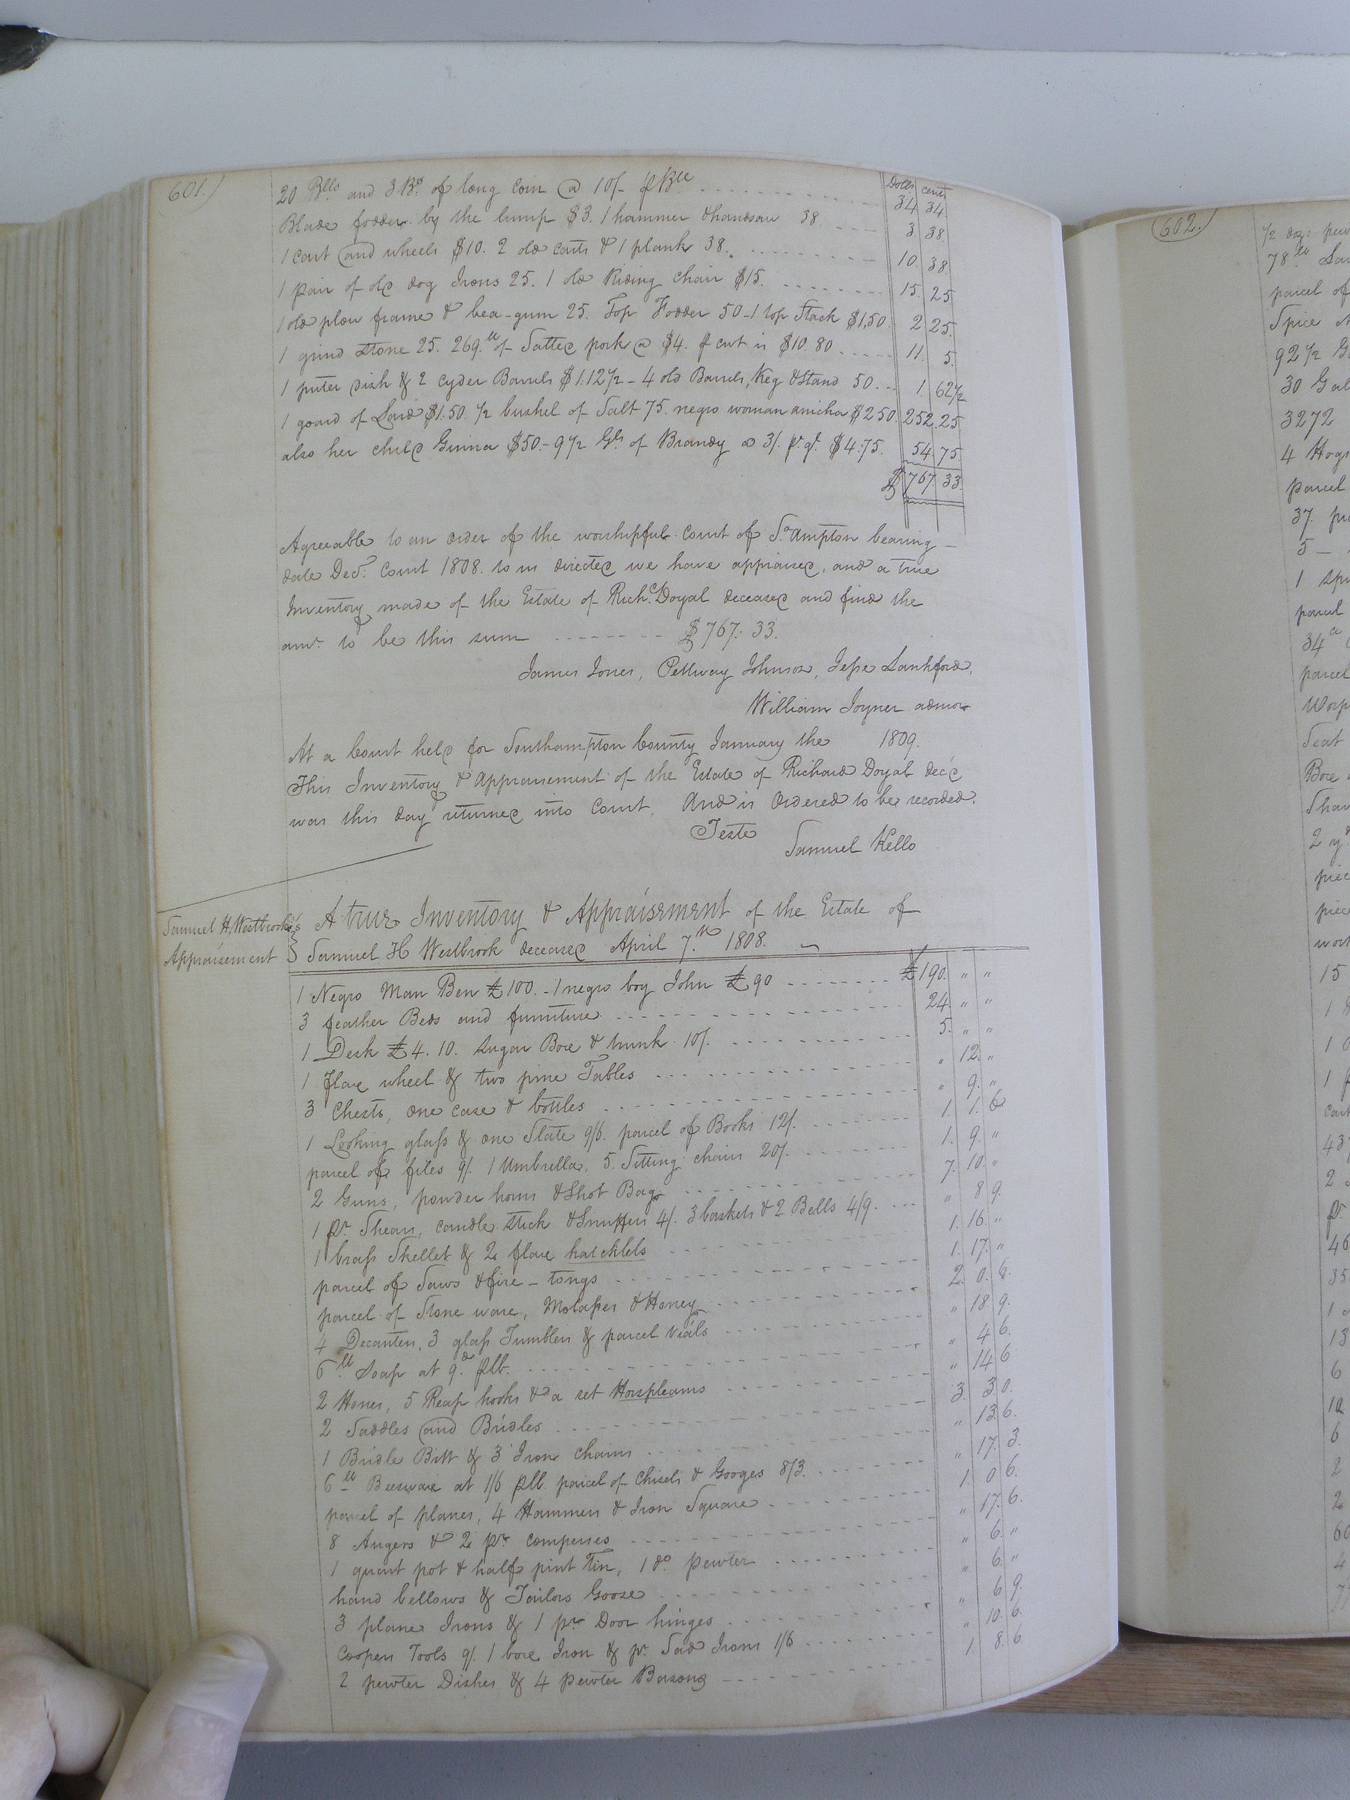 601.)
Dolls cents
20 Blls and 3 Bs. of long Corn @ 10/- p Bll 34 34
Blade fodder by the lump $3. 1 hammer & handsaw 38 3 38
1 cart and wheels $10. 2 old carts & 1 plank 38. 10 38
1 pair of old dog Irons 25. 1 old Riding chair $15. 15. 25
1 old plow frame & bea-gum 25. Top Fodder 50 - 1 top Stack $1,50 2 25.
1 grind Stone 25. 269.ll of Satted pork @ $4. p cwt is $10.80 11. 5.
1 puter dish & 2 cyder Barrels $1.12 1/2 - 4 old Barrels, Keg & Stand 50 1 62 1/2
1 goard of Lard $1.50. 1/2 bushel of Salt 75. negro woman $250. 252. 25
also her child $50 - 9 1/2 Gls of Brandy @ 3/. pr gl. $4.75. 54 75
$767 33.
Agreeable to an order of the worshipfull Court of So.ampton bearing
date Decr. Court 1808. to us directed we have appraised, and a true
Inventory made of the Estate of Richd. Doyal deceased and find the
amt. to be this sum $767. 33.
James Jones, Pettway Johnson, Jesse Lankford,
William Joyner admor
At a Court held for Southampton County January the 1809.
This Inventory & Appraisement of the Estate of Richard Doyal decd
was this day returned into Court. And is Ordered to be recorded.
Teste
Samuel Kello
Samuel H. Westbrook's
Appraisement
A true Inventory & Appraisement of the Estate of
Samuel H Westbrook deceased April 7.th 1808.
1 Negro Man Ben £100. - 1 negro boy John £90 £190. " "
3 feather Beds and furniture 24. " "
1 Desk £4. 10. Sugar Boxe & trunk 10/. 5. " "
1 flax wheel & two pine Tables " 12. "
3 Chests, one case & bottles " 9. "
1 Looking glass & one Slate 9/6. parcel of Books 12/. 1. 1. 6
parcel of files 9/. 1 Umbrella, 5 Sitting chairs 20/. 1. 9. "
2 Guns, powder horns & Shot Bags 7. 10. "
1 Pr Shears, candle stick & Snuffers 4/. 3 baskets & 2 Bells 4/9. " 8 9.
1 brass Skellet & 2 flax hatchlels 1. 16. "
parcel of Saws & fire-tongs 1. 17. "
parcel of Stone ware, Molasses & Honey 2. 0. 8.
4 Decanters, 3 glass Tumblers & parcel vials " 18 9.
6 ll Soap at 9.d plb. " 4 6.
2 Hones, 5 Reap hooks & a set Horsfleams " 14 6
2 Saddles and Bridles 3. 3 0.
1 Bridle Bitt & 3 Iron chains " 13 6.
6 ll Beeswax at 1/6 plb. parcel of Chisels & Googes 8/3. " 17. 3.
parcel of planes, 4 Hammers & Iron Square 1. 0 6.
8 Augers & 2 pr compesses " 17. 6.
1 quart pot & half pint Tin, 1 do. Pewter " 6. "
hand bellows & Tailors Goose " 6. "
3 plane Irons & 1 pr Door hinges " 6 9.
Coopers Tools 9/. 1 boxe Iron & pr. Sad Irons 1/6 " 10. 6.
2 pewter Dishes & 4 pewter Basons 1. 8. 6
602.)
1/2 doz: pew
78 ll
parcel of
Spice
92 1/2
30 Gal
3272
4 Hogs
parcel
37.
5 -
1
parcel
34
parcel
Seat
2
15
1
1
1
43
2
pr
46
35
1
13
6
10
6
2
2
60
4